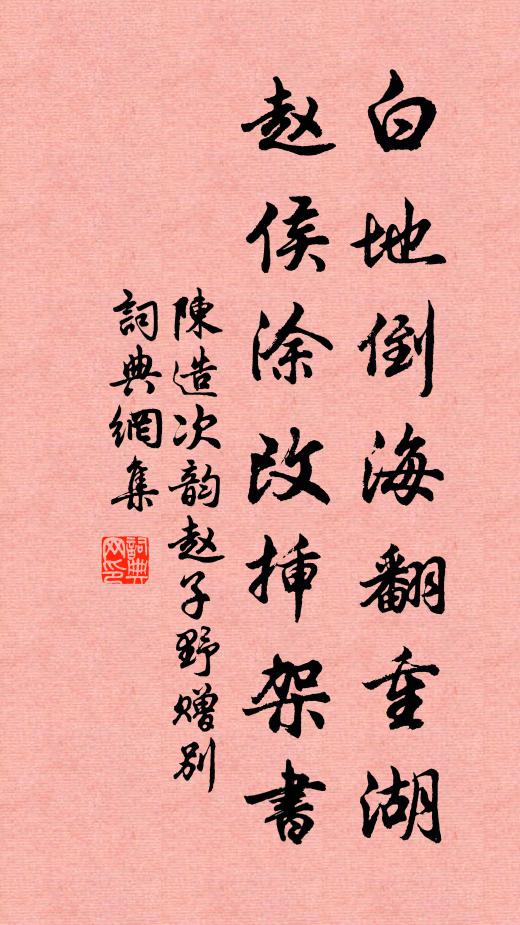 白地倒海翻重湖
赵侯涂改插架書
陳造次韵赵子野赠别
詞典網集
詞典网印